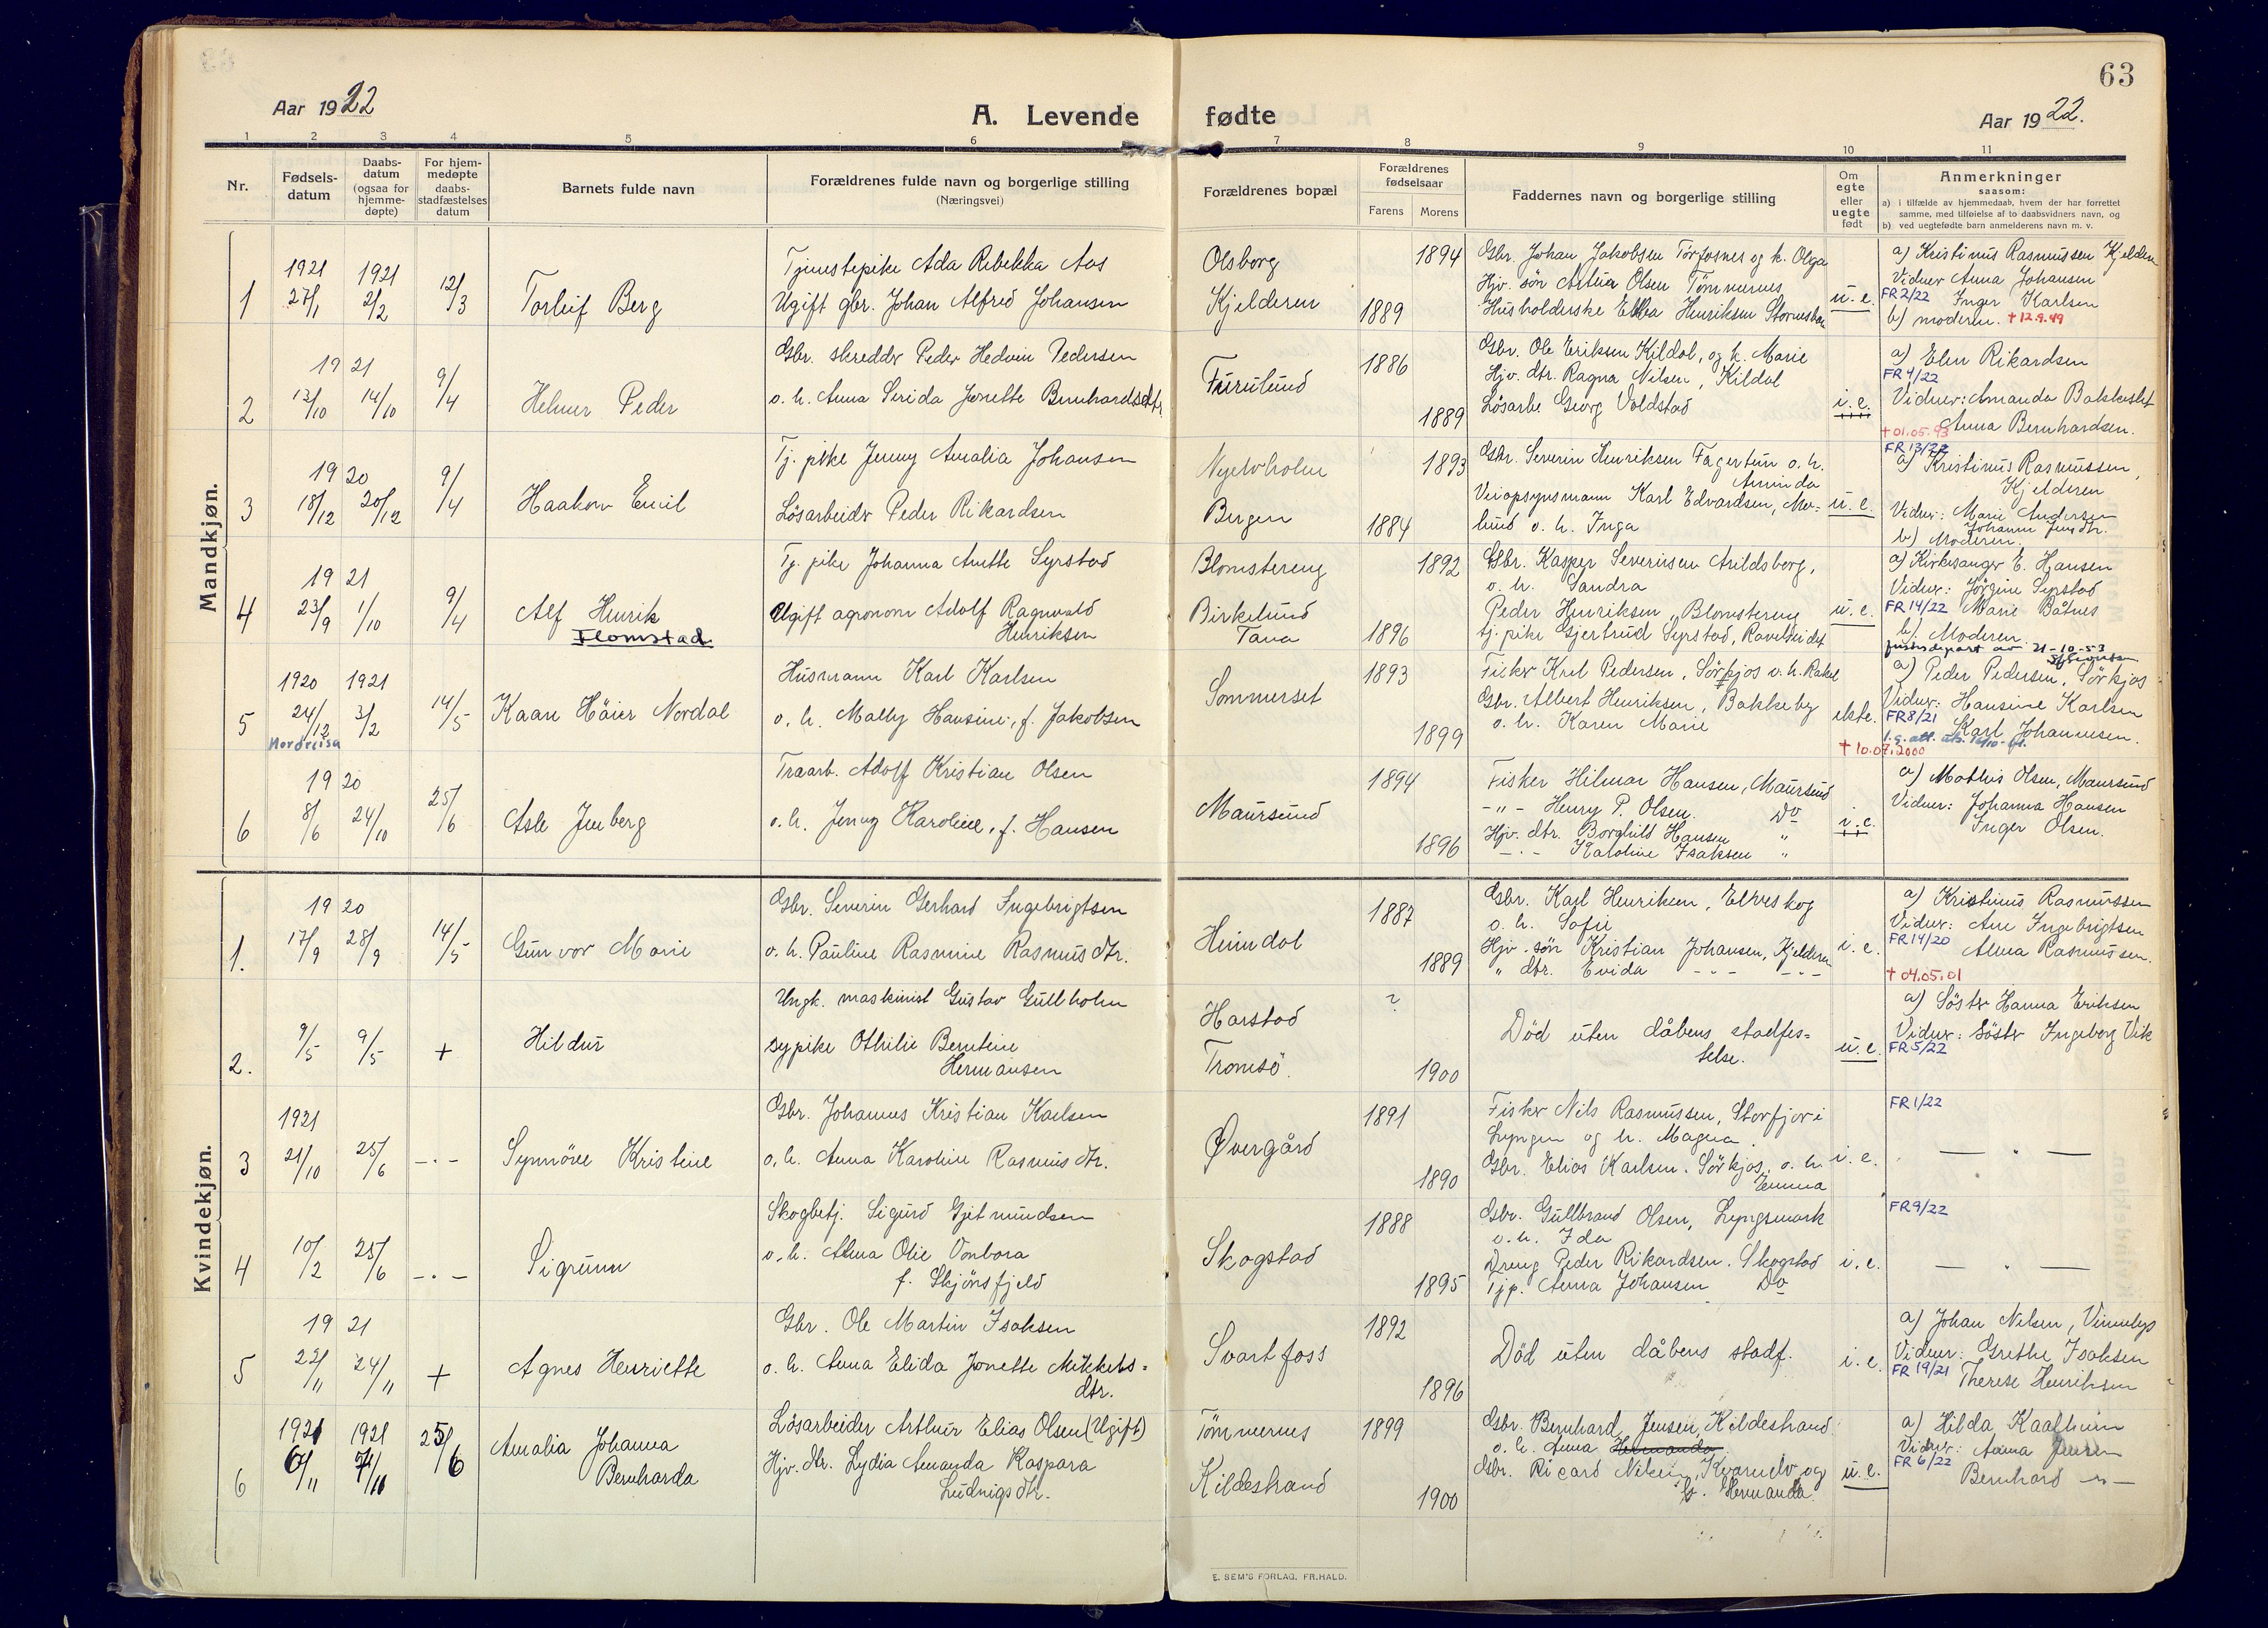 63
Aar 1922
A. Levende fødte
Aar 1922.
1 2 3 4 5 6 7 8 9 10 11
Nr.
Fødsels-
datum
Daabs-
datum
(ogsaa for
hjemme-
døpte)
For hjem-
medøpte
daabs-
stadfæstelses
datum
Barnets fulde navn
Forældrenes fulde navn og borgerlige stilling
(Næringsvei)
Forældrenes bopæl
Forældrenes
fødselsaar
Farens Morens
Faddernes navn og borgerlige stilling
Om
egte
eller
uegte
født
Anmerkninger
saasom:
a) i tilfælde av hjemmedaab, hvem der har forrettet
samme, med tilføielse af to daabsvidners navn, og
b) ved uegtefødte barn anmelderens navn m. v.
Mandkjøn.
1
1921 27/1
1921 2/2
12/3
Torleif Berg
Tjenestepike Ada Rebekka Aas
Ugift gbr. Johan Alfred Johansen
Olsborg
Kjelderen
1889
1894
Gbr. Johan Jakobsen Tørfosnes og h. Olga
Hjv. søn Artur Olsen Tømmernes
Husholderske Ebba Henriksen
u. e.
a) Kristinus Rasmussen Kjelderen
Vidner Anna Johansen
FR 2/22 Inger Karlsen
b) moderen. † 12.9.49
2
1921
13/10
14/10
9/4
Helmer Peder
Gbr. skredder Peder Hedvin Pedersen
o. h. Anna Serida Jonette Bernhardsdtr
Furulund
1886
1889
Gbr. Ole Eriksen Kildal, og h. Marie
Hjv. dtr. Ragna Nilsen, Kildal
Løsarb. Georg Voldstad
i. e.
a) Elen Rikardsen
FR 4/22
Vidner: Amanda Bakkeslet
Anna Bernhardsen.
† 01.05.93
3
1920
18/12
20/12
9/4
Haakon Emil
Tj. pike Jenny Amalia Johansen
Løsarbeider Peder Rikardsen
Nyelvholm
Bergen
1884
1893
Gbr. Severin Henriksen Fagertun o. h.
Arminda
Veiopsynsmann Karl Edvardsen, Mo-
lund o. h. Inga
u. e.
FR 13/22
a) Kristinus Rasmussen,
Kjelderen
Vidner: Marie Andersen
Johanna Jensdtr.
b) Moderen.
4
1921
23/9
1/10
9/4
Alf Henrik
Flomstad
Tj. pike Johanna Anette Syrstad
Ugift agronom Adolf Ragnvald
Henriksen
Blomstereng
Birkelund
Tana
1896
1892
Gbr. Kasper Severinsen Arildsborg,
o. h. Sandra
Peder Henriksen, Blomstereng
tj. pike Gjertrud Syrstad, Raveldeidet
u. e.
a) Kirkesanger E. Hansen
Vidner: Jørgine Syrstad
FR 14/22 Marie Båtnes
b) Moderen.
justisdepart av 21-10-53
5
1920 24/12
Nordreisa
1921 3/2
14/5
Kaare Höier Nordal
Husmann Karl Karlsen
o. h. Mally Hansine, f. Jakobsen
Sommerset
1893
1899
Fisker Karl Pedersen, Sörkjos o. h. Rakel
Gbr. Albert Henriksen, Bakkeby
o. h. Karen Marie
ekte.
† 10.07.2000
a) Peder Pedersen, Sörkjos
Vidner: Hansine Karlsen
FR 8/21 Karl Johannesen.
6
1920
8/6
24/10
25/6
Asle Jenberg
Traarb. Adolf Kristian Olsen
o. h. Jenny Karoline, f. Hansen
Maursund
1894
1896
Fisker Hilmar Hansen, Maursund
-„- Henry P. Olsen. Do
Hjv. dtr. Borghild Hansen „
-„- Karoline Isaksen „
i. e.
a) Mathis Olsen, Maursund
Vidner: Johanna Hansen
Inger Olsen.
Kvindekjøn.
1.
1920
17/9
28/9
14/5
Gunvor Marie
Gbr. Severin Gerhard Ingebrigtsen
o. h. Pauline Rasmine Rasmusdtr.
Heimdal
1887
1889
Gbr. Karl Henriksen, Elveskog
o. h. Sofie
Hjv. søn Kristian Johansen, Kjelderen
„ dtr. Evida -„- -„-
i. e.
a) Kristinus Rasmussen
Vidner: Ane Ingebrigtsen
FR 14/20 Alma Rasmussen.
† 04.05.01
2.
9/5
9/5
+
Hildur
Ungk. maskinist Gustav Gullholm
sypike Othilie Berntine
Hermansen
Harstad
Tromsö.
?
1900
Död uten dåbens stadfes=
telse.
u. e.
a) Söster Hanna Eriksen
Vidner: Söster Ingeborg Vik
FR 5/22
3
1921
21/10
25/6
-„-
Synnöve Kristine
Gbr. Johannes Kristian Karlsen
o. h. Anna Karoline Rasmusdtr.
Øvergård
1891
1890
Fisker Nils Rasmussen, Storfjor i
Lyngen og h. Magna.
Gbr. Elias Karlsen. Sörkjos. o. h.
Emma
i. e.
FR 1/22
— „ —
4
10/2
25/6
-„-
Sigrunn
Skogbetj. Sigurd Gjetmundsen
o. h. Alma Olie Vonbora
f. Skjönsfjeld
Skogstad
1888
1895
Gbr. Gullbrand Olsen, Lyngsmark
o. h. Ida
Dreng Peder Rikardsen. Skogstad
Tjp. Anna Johansen Do
i. e.
FR 9/22
— „ —
5
1921
22/11
24/11
+
Agnes Henriette
Gbr. Ole Martin Isaksen
o. h. Anna Elida Jonette Mikkels=
dtr.
Svartfoss
1892
1896
Död uten dåbens stadf.
i. e.
a) Johan Nilsen, Vinnelys
Vidner: Grethe Isaksen
FR 19/21 Therese Henriksen
6
1921 6/11
1921 7/11
25/6
Amalia Johanna
Bernharda
Løsarbeider Arthur Elias Olsen (Ugift)
Hjv. dtr. Lydia Amanda Kaspara
Ludvigsdtr.
Tömmernes
Kildestrand
1899
1900
Gbr. Bernhard Jensen, Kildestrand
o. h. Anna Hermanda.
Gbr. Ricard Nilsen, Kvænelv og
h. Hermanda
u. e.
a) Hilda Kaalheim
Vidner: Anna Jensen
FR 6/22
Bernhard -„-
E. SEM'S FORLAG, FR.HALD.